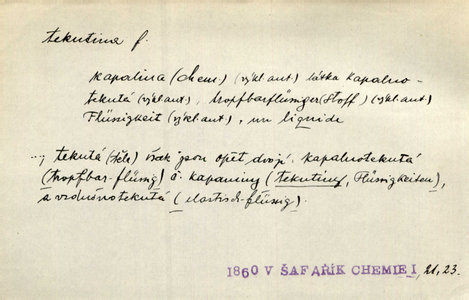 tekutina f.
kapalina (chem.) (výkl. aut.) látka kapalno-
tekutá (výkl. aut.), tropfbarflüssiger (Stoff) (výkl. aut.)
Flüssigkeit (výkl. aut.), un liquide
..., tekutá (těla) však jsou opět dvojí. kapalnotekutá
(tropfbar-flüssig) č. kapaniny (tekutiny, Flüssigkeiten),
a vzdušnotekutá (elastisch-flüssig).
1860 V ŠAFAŘÍK CHEMIE I, 21, 23.